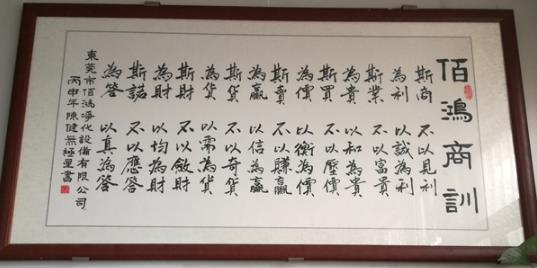 佰鴻商訓
斯商 不以見利
為利 以誠為利
斯業 不以富貴
為貴 以和為貴
斯買 不以壓價
為價 以衡為價
斯賣 不以賺贏
為贏 以信為贏
斯貨 不以奇貨
為貨 以需為貨
斯財 不以斂財
為財 以均為財
斯諾 不以應答
為答 以真為答
東莞市佰鴻淨化設備有限公司
丙申年陳健無極星書